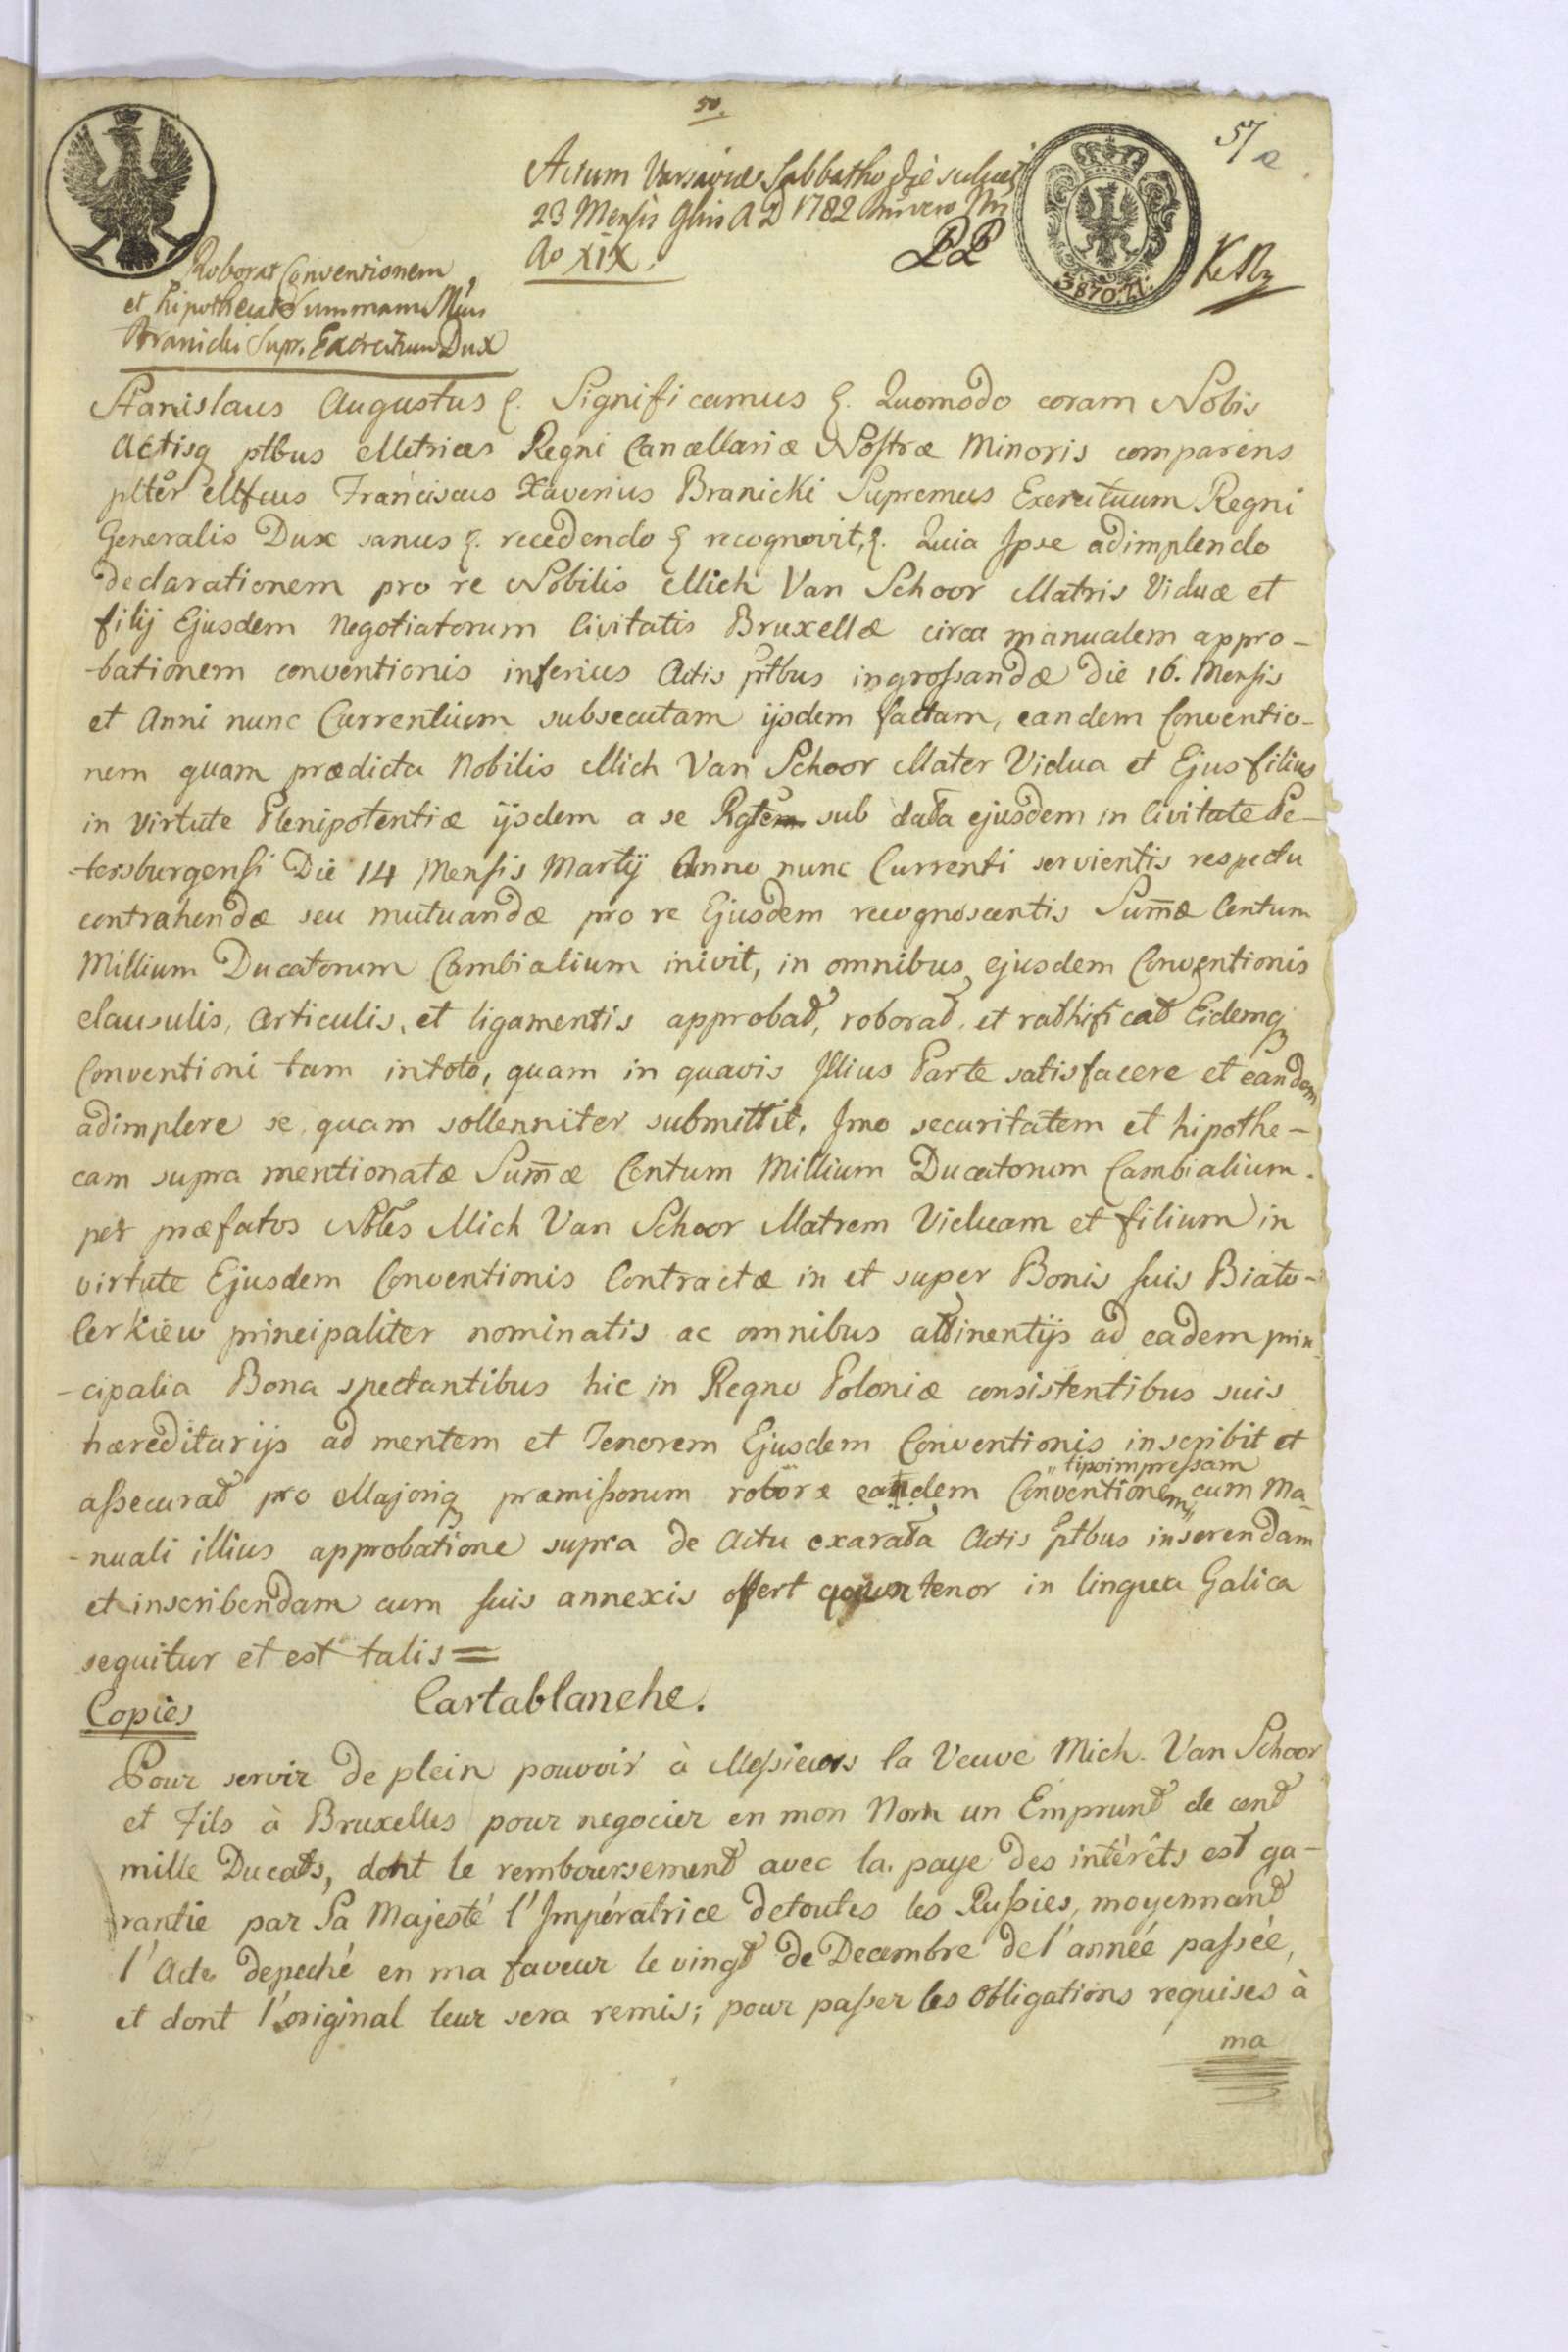 50.
57
a
Actum Varsaviæ Sabbatho die scilicet
23 Mensis 9bris A D 1782
Ao XIX.
PP
3870. Zł.
Roborat Conventionem
et hipothecat Summam
Branicki Supr. Exercituum Dux
Stanislaus Augustus &. Significamus &. Quomodo coram Nobis
Actisq ptbus Metrices Regni Cancellariæ Nostræ Minoris comparens
pltēr Mfcus Franciscus Xaverius Branicki Supremus Exercituum Regni
Generalis Dux sanus &. recedendo & recognovit, &. Quia Ipse adimplendo
declarationem pro re Nobilis Mich Van Schoor Matris Viduæ et
filij Ejusdem Negotiatorum Civitatis Bruxellæ circa manualem appro-
-bationem conventionis inferius Actis ptbus ingrossandæ Die 16. Mensis
et Anni nunc Currentium subsecutam ijsdem factam, eandem Conventio-
nem quam prædicta Nobilis Mich Van Schoor Mater Vidua et Ejus filius
in virtute Plenipotentiæ ijsdem a se sub data ejusdem in Civitate Pe-
-tersburgensi Die 14 Mensis Martij Anno nunc Currenti servientis respectu
contrahendæ seu mutuandæ pro re Ejusdem recognoscentis Sum̄æ Centum
Millium Ducatorum Cambialium inivit, in omnibus ejusdem Conventionis
clausulis, Articulis, et ligamentis approbat, roborat, et rathificat Eidemq
Conventioni tam intoto, quam in quavis Illius Parte satisfacere et eandem
adimplere se quam sollenniter submittit, Imo securitatem et hipothe-
cam supra mentionatæ Sum̄æ Centum Millium Ducatorum Cambialium.
per præfatos Nobles Mich Van Schoor Matrem Viduam et filium in
virtute Ejusdem Conventionis Contractæ in et super Bonis suis Biało-
Cerkiew principaliter nominatis ac omnibus attinentijs ad eadem prin-
-cipalia Bona spectantibus hic in Regno Poloniæ consistentibus suis
hæreditarijs ad mentem et Tenorem Ejusdem Conventionis inscribit et
assecurat pro Majoriq præmissorum robore eandem Conventionem "tipoimpressam" cum Ma-
-nuali illius approbatione supra de Actu exarata Actis ptbus inserendam
et inscribendam cum suis annexis offert tenor in lingua Galica
sequitur et est talis =
Copies Cartablanche.
Pour servir de plein pouvoir à Messieurs la Veuve Mich. Van Schoor
et Fils à Bruxelles pour negocier en mon Nom un Emprunt de cent
mille Ducats, dont le remboursement avec la paye des intérêts est ga-
rantie par Sa Majesté l'Impératrice detoutes les Russies, moyennant
l'Acte depeché en ma faveur le vingt de Decembre de l'année passée,
et dont l'original leur sera remis; pour passer les Obligations requises à
ma